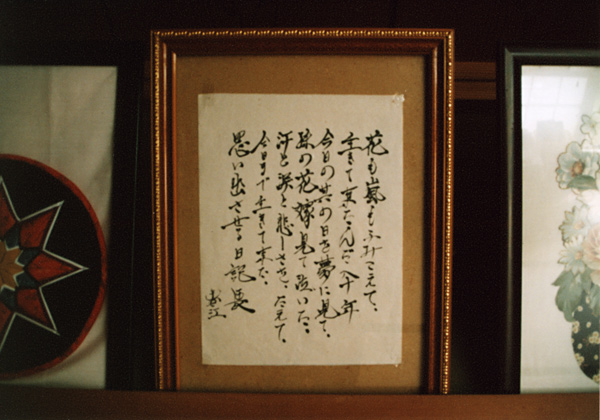 花も嵐もふみこえて、
生きて来たんだ八十年
今日の其の日を夢に見て、
孫の花嫁見て泣いた、
涙と悲しさこたえて、
今日まで生きて来た、
思い出させる日記長
江